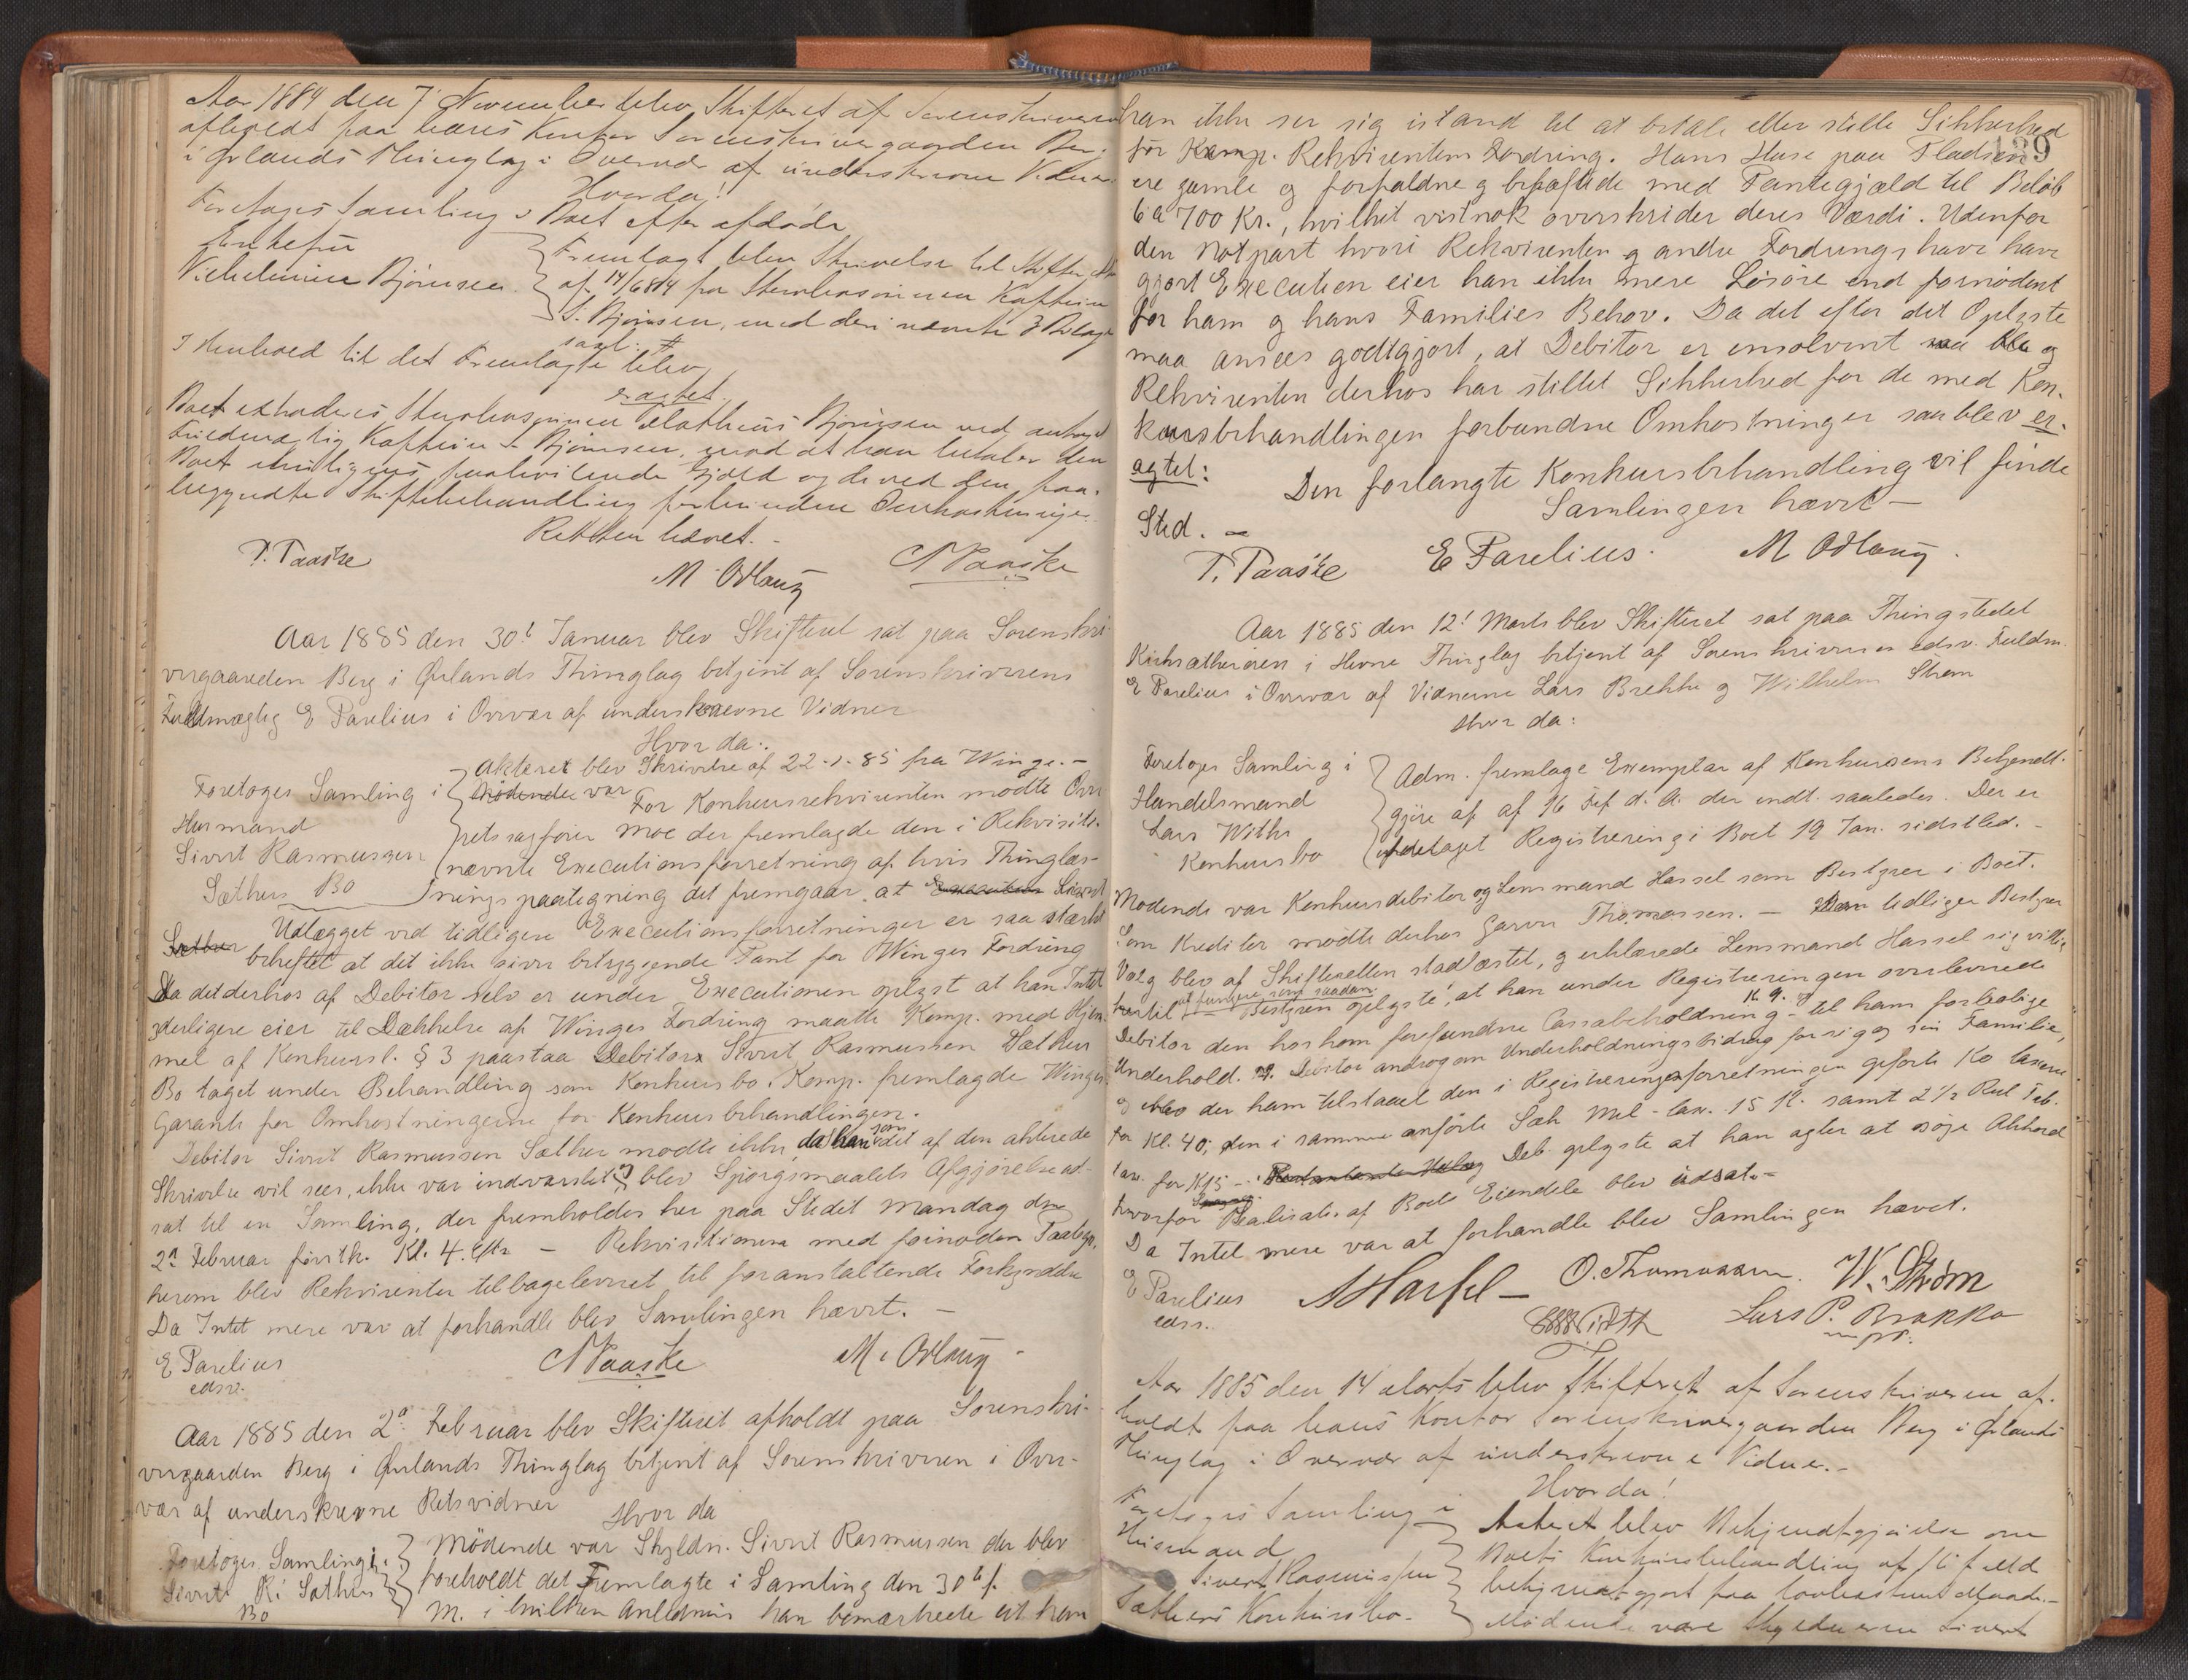 Aar 1884 den 7' November blev Skifteret af Sorenskriveren
afholdt paa hans Kontor Sorenskrivergaarden Berg
i Ørlands Thinglag i Overvær af underskrevne Vidner
Hvorda!
Foretoges Samling i Boet efter afdøde
Enkefru
Vilhelmine Bjørnsen.
Fremlagt blev Skrivelse til Skifteretten
af 14/6 84 fra Stervbosønnen Kaptein
S. Bjørnsen, med deri nævnte 3 Bilage
saal. #
I Henhold til det Fremlagte blev
eragtet.
Boet extraderes Stervbosønnen Mathias Bjørnsen ved antaget
Fuldmægtig Kaptein S. Bjørnsen, mod at han betaler den
Boet muligens paahvilende Gjæld og de ved den paa-
begyndte Skiftebehandling forbundne Omkostninger.
Retten hævet. -
P. Paaske
M. Odlaug
N Paaske
Aar 1885 den 30t Januar blev Skifteret sat paa Sorenskri-
vergaarden Berg i Ørlands Thinglag betjent af Sorenskriverens
Fuldmægtig E Parelius i Overvær af underskrevne Vidner
Hvor da:
Foretoges Samling i
Husmand
Sivert Rasmussen
Sæther Bo
Akteret blev Skrivelse af 22-1-85 fra Winge. -
Mødende var For Konkursrekvirenten mødte Over
retssagfører Moe der fremlagde den i Rekvisits.
nævnte Executionsforretning af hvis Thinglæs-
ningspaategning det fremgaar, at Execution Sivert
Sæther Udlægget ved tidligere Executionsforretninger er saa stærkt
beheftet at det ikke giver betryggende Pant for Winges Fordring
Da det derhos af Debitor selv er under Executionen oplyst at han Intet
yderligere eier til Dækkelse af Winges Fordring maatte Komp. med Hjem-
mel af Konkursl. § 3 paastaa Debitors Sivert Rasmussen Sæther
Bo taget under Behandling som Konkursbo. Komp. fremlagde Winges
Garanti for Omkostningerne for Konkursbehandlingen.
Debitor Sivert Rasmussen Sæther mødte ikke, da han som det af den akterede
Skrivelse vil sees, ikke var indvarslet og blev Spørgsmaalets Afgjørelse ud-
sat til en Samling, der fremholdes her paa Stedet Mandag den
2n Februar førstk. Kl. 4. Eftr - Rekvisitionen med fornøden Paategn.
herom blev Rekvirenten tilbageleveret til foranstaltende Forkyndelse
Da Intet mere var at forhandle blev Samlingen hævet. -
E Parelius
edsv.
N Paaske
M. Odlaug
Aar 1885 den 2n Februar blev Skifteret afholdt paa Sorenskri-
vergaarden Berg i Ørlands Thinglag betjent af Sorenskriveren i Over-
vær af underskrevne Retsvidner
Hvor da
Foretoges Samling i
Sivert R. Sæthers
Bo
Mødende var Skyldn. Sivert Rasmussen der blev
foreholdt det Fremlagte i Samling den 30t f.
M. i hvilken Anledning han bemærkede at han
139
han ikke ser sig istand til at betale eller stille Sikkerhed
for Komp. Rekvirentens Fordring. Hans Huse paa Pladsen
ere gamle og forfaldne og behæftede med Pantegjæld til Beløb
6 a 700 Kr., hvilket vistnok overskrider deres Værdi. Udenfor
den Notpart hvori Rekvirenten og andre Fordringshave have
gjort Execution eier han ikke mere Løsøre end fornødent
for ham og hans Families Behov. Da det efter det Oplyste
maa ansees godtgjort, at Debitor er insolvent og
Rekvirenten derhos har stillet Sikkerhed for de med Kon-
kursbehandlingen forbundne Omkostninger saa blev er-
agtet: Den forlangte Konkursbehandling vil finde
Sted. -
Samlingen hævet -
P. Paaske
E Parelius.
M Odlaug.
Aar 1885 den 12t Marts blev Skifteret sat paa Thingstedet
Kirksætherøren i Hevne Thinglag betjent af Sorenskriverens edsv. Fuldm.
E Parelius i Overvær af Vidnerne Lars Brekke og Wilhelm Strøm
Hvor da:
Foretoges Samling i
Handelsmand
Lars Withs
Konkursbo
Adm. fremlage Exemplar af Konkursens Bekjendt-
gjøre af af 16 Feb d. A. der indt. saaledes. Der er
foretaget Registrering i Boet 19 Jan. sidstled. -
Mødende var Konkursdebitor og Lensmand Hassel som Bestyrer i Boet.
Som Kreditor mødte derhos Garver Thomassen. - Den tidligere Bestyrer
Valg blev af Skifteretten stadfæstet, og erklærede Lensmand Hassel sig villig
hertil at fungere som saadan. Bestyren oplyste, at han under Registreringen overleverede
Debitor den hos ham forefundne Cassabeholdning K. 9. - til hans foreløbige
Underhold. Debitor androg om Underholdningsbidrag for sig og sin Familie,
og blev der ham tilstaaet den i Registreringsforretningen opførte Ko taxeret
for Kr. 40, den i samme anførte Sæk Mel - tax. 15 K. samt 2 1/2 Rul Tob.
tax. for K15 - Deb. oplyste at han agter at søge Akkord
hvorfor Realisat. af Boets Eiendele blev udsat. -
Da Intet mere var at forhandle blev Samlingen hævet.
E Parelius
edsv.
A Hassel -
O. Thomassen.
W. Strøm
With
Lars P. Brækka
m.p.P.
Aar 1885 den 14 Marts blev Skifteret af Sorenskriveren af-
holdt paa hans Kontor Sorenskrivergaarden Berg i Ørlands
Thinglag i Overvær af underskrevne Vidner. -
Hvorda!
Foretoges Samling i
Husmand
Sivert Rasmussen
Sæthers Konkursbo.
Akteret blev Bekjendtgjørelse om
Boets Konkursbehandling af
bekjendtgjort paa lovbestemt Maade. -
Mødende vare Skyldneren Sivert